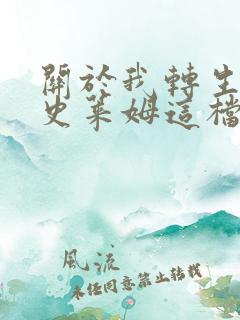 關於我轉生
史萊姆這檔
風流
未經同意禁止轉載